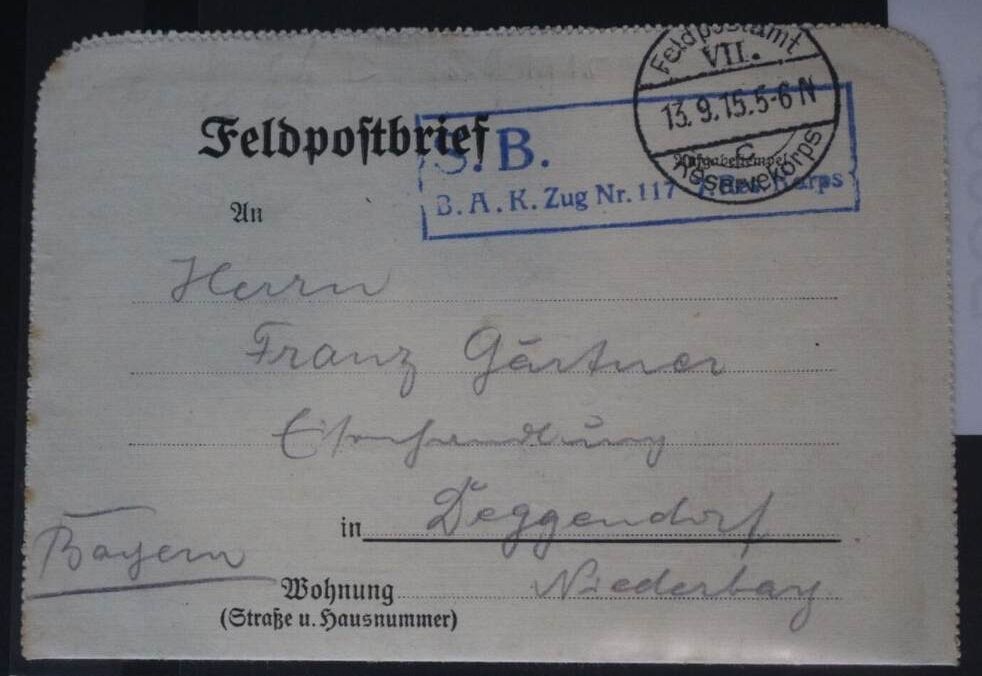 Feldpostamt
VII.
13.9.15.5-6 N
C
Reservekorps
Feldpostbrief
S.B.
B.A.K. Zug Nr. 117 7. Res. Korps
Aufgabestempel
An
Herrn
Franz Gärtner
Eisenhandlung
in Deggendorf
Bayern
Niederbay
Wohnung
(Straße u. Hausnummer)